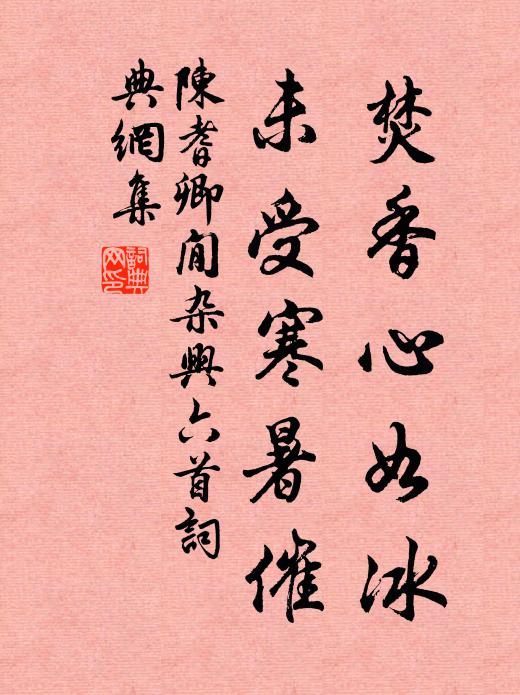 焚香心如冰
未受寒暑催
陳耆卿閒杂興六首詞
典網集
詞典网印